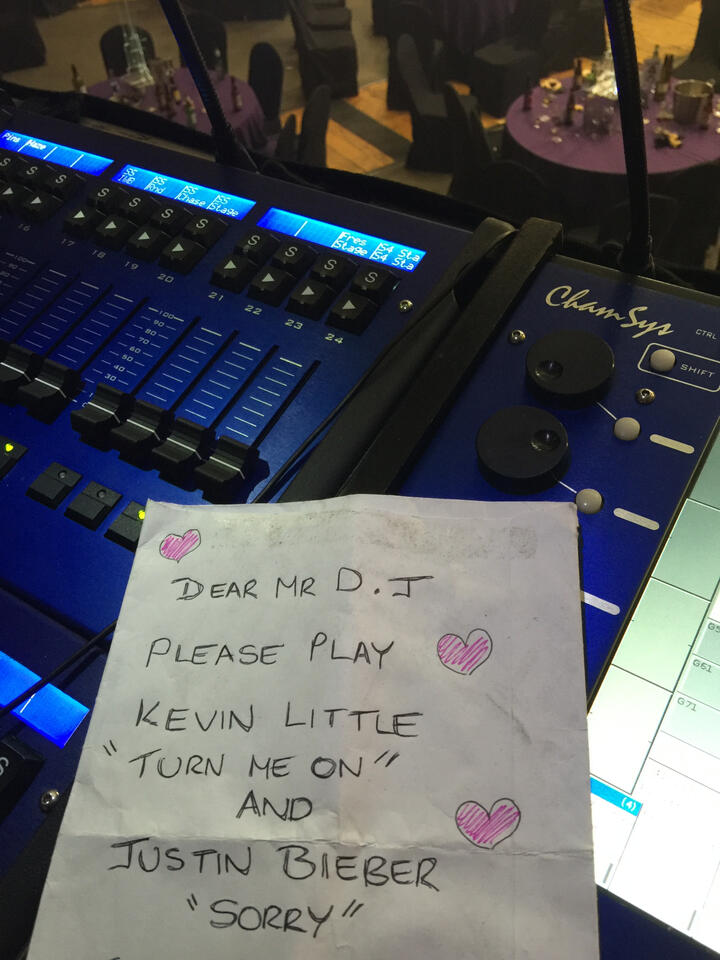 Pins Haze
SS SS SS SS
TWB Rnd Chase Stage
Fres S4 Sta
Stage S4 Sta
16
17
18
19
20
21
22
23
24
100
90
80
70
60
50
40
30
ChamSys
CTRL
SHIFT
S
G61
G71
(4)
DEAR MR D.J
PLEASE PLAY
KEVIN LITTLE
"TURN ME ON"
AND
JUSTIN BIEBER
"SORRY"